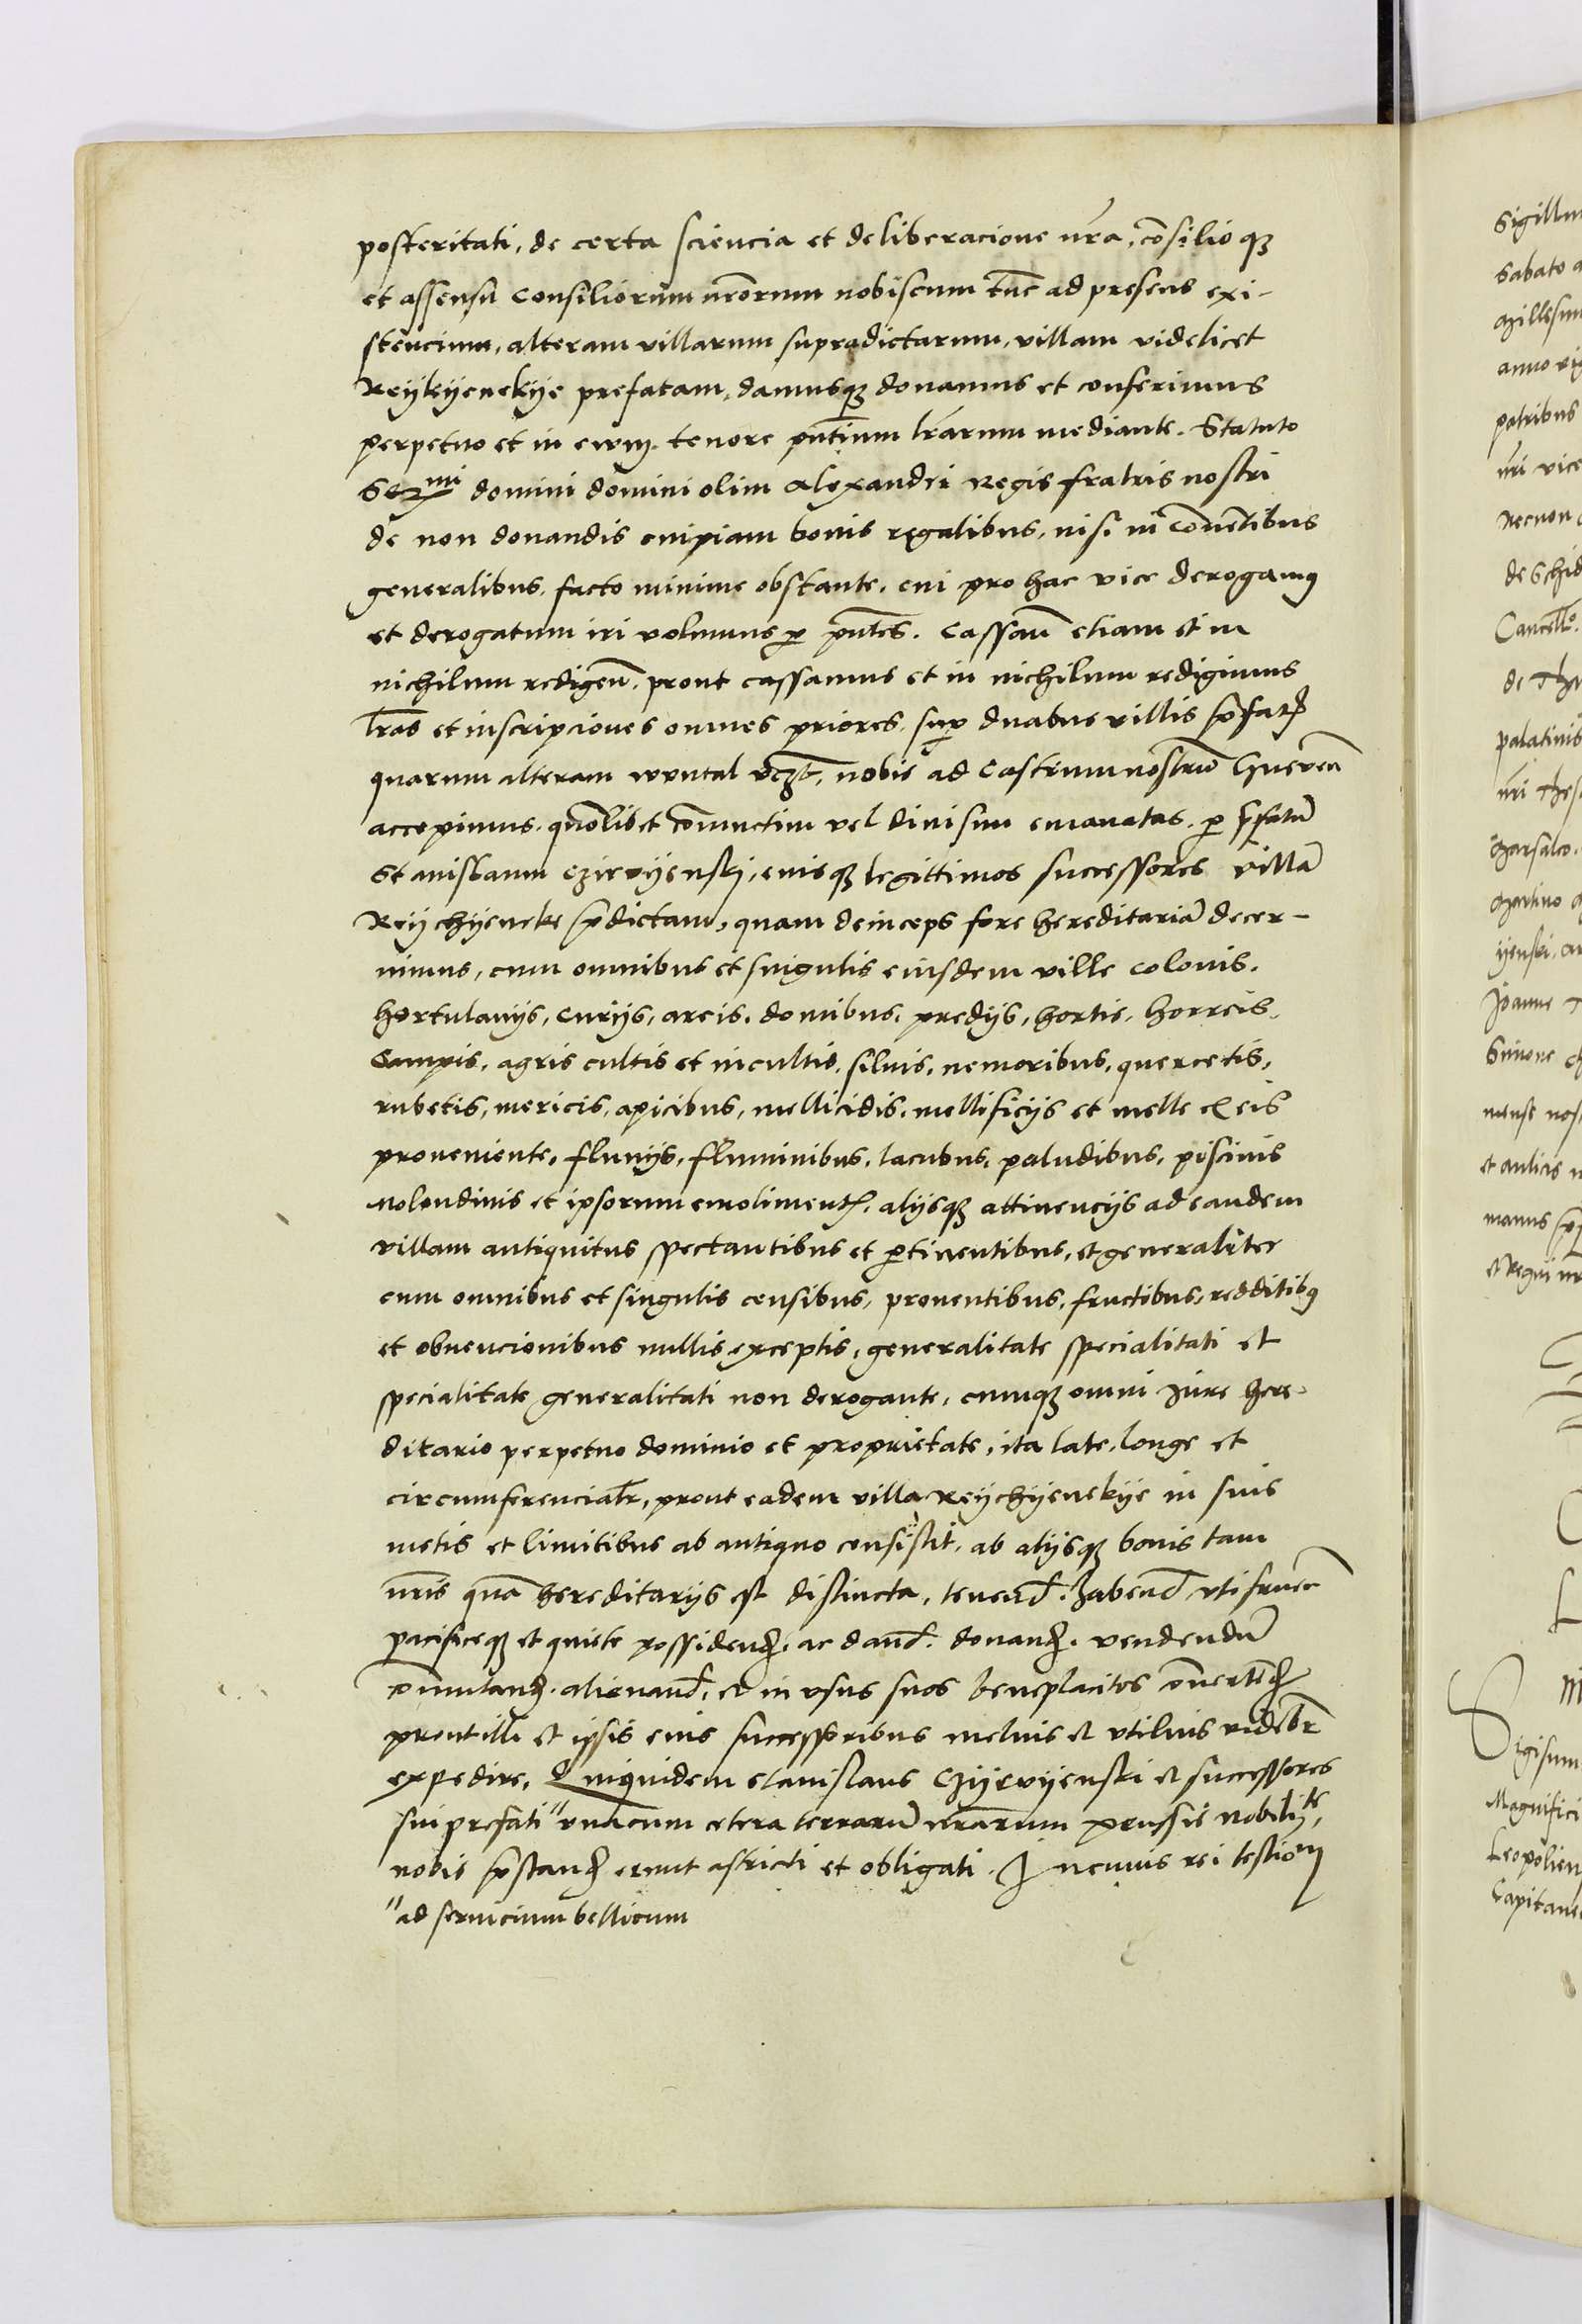 posteritati, de certa sciencia et deliberacione nr̃a, cõsilio qꝫ
et assensu consiliorum nr̃orum nobiscum tũc ad presens exi-
stencium, alteram villarum supradictarum, villam videlicet
Reykyenekye prefatam, damusqꝫ donamus et conferimus
perpetuo et in ewm. tenore pñtium lr̃arum mediante. Statuto
Seꝛmi domini domini olim Alexandri Regis fratris nostri
de non donandis cuipiam bonis regalibus, nisi in cõuẽtibus
generalibus, facto minime obstante, cui pro hac vice derogamꝰ
et derogatum iri volumus ꝑ pñtes. Cassañ etiam et in
nichilum redigeñ, prout cassamus et in nichilum redigimus
lr̃as et inscripciones omnes priores, suꝑ duabus villis p̃fatꝭ
quarum alteram nobis ad Castrum nostrũ
accepimus, quõlibet cõiunctim vel diuisim emanatas, ꝑ p̃fatũ
Stanislaum Czirvyenski, eiusqꝫ legittimos successores villã
Reychyeneke p̃dictam, quam deinceps fore hereditariã decer-
nimus, cum omnibus et singulis eiusdem ville colonis,
hortulanijs, curijs, areis, domibus, predijs, hortis, horreis,
Campis, agris cultis et incultis, siluis, nemoribus, quercetis,
rubetis, mericis, apicibus, mellicidis, mellificijs et melle ex eis
proueniente, fluuijs, fluminibus, lacubus, paludibus, piscinis
Molendinis et ipsorum emolimentꝭ, alijsqꝫ attinencijs ad eandem
villam antiquitus spectantibus et ꝑtinentibus, et generaliter
cum omnibus et singulis censibus, prouentibus, fructibus, redditibꝰ
et obuencionibus nullis exceptis, generalitate specialitati et
specialitate generalitati non derogante, cumqꝫ omni Jure here-
ditario perpetuo dominio et proprietate, ita late, longe et
circumferencialr̃, prout eadem villa Reychyenekye in suis
metis et limitibus ab antiquo consistit, ab alijsqꝫ bonis tam
nr̃is quã hereditarijs est distincta, tenend. habend. vtifrueñ
pacificeqꝫ et quiete possidend. ac dand. donand. vendendũ
cõmutand. alienand. et in vsus suos beneplacitos cõuertend.
prout illi et ipsis eius successoribus melius et vtilius videbr̃
expedire, Quiquidem Stanislaus Czyrvyenski et successores
sui prefati " vnacum cetera terrarũ nr̃arum prussie nobilite,
nobis p̃stand. erunt astricti et obligati. In cuius rei testiom
" ad seruicium bellicum
Sabato a
anno
patribus
nr̃i vice
Necnon
de Schid
Cancello.
de
palatinis
nr̃i Thes
Martino
Joanne
Simone
et aulicis
manus
et Regni nr̃
Sigism
Magnifici
Leopolien
Capitane